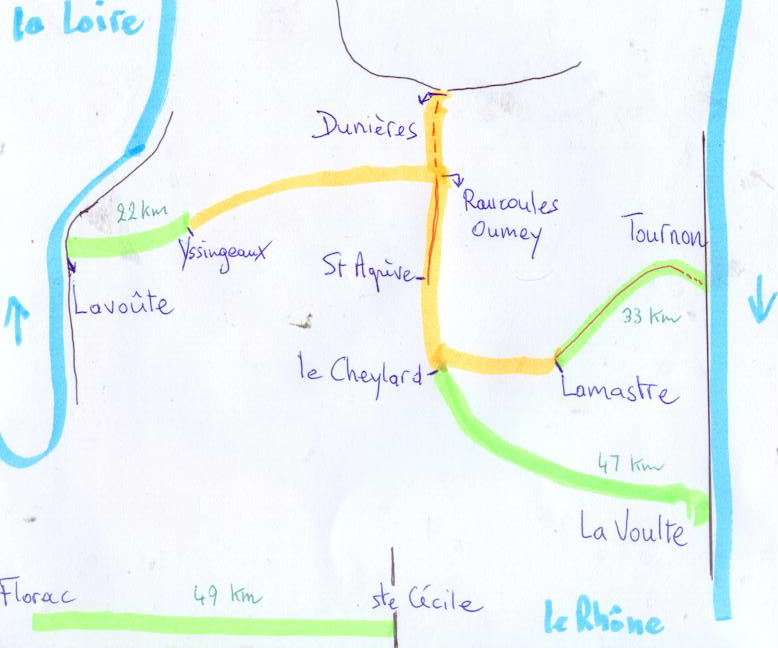 la Loire
Dunières
22 km
Yssingeaux
Raucoules
Oumey
Tournon
St Agrève
Lavoûte
33 Km
le Cheylard
Lamastre
47 Km
La Voulte
Florac
49 Km
ste Cécile
le Rhône